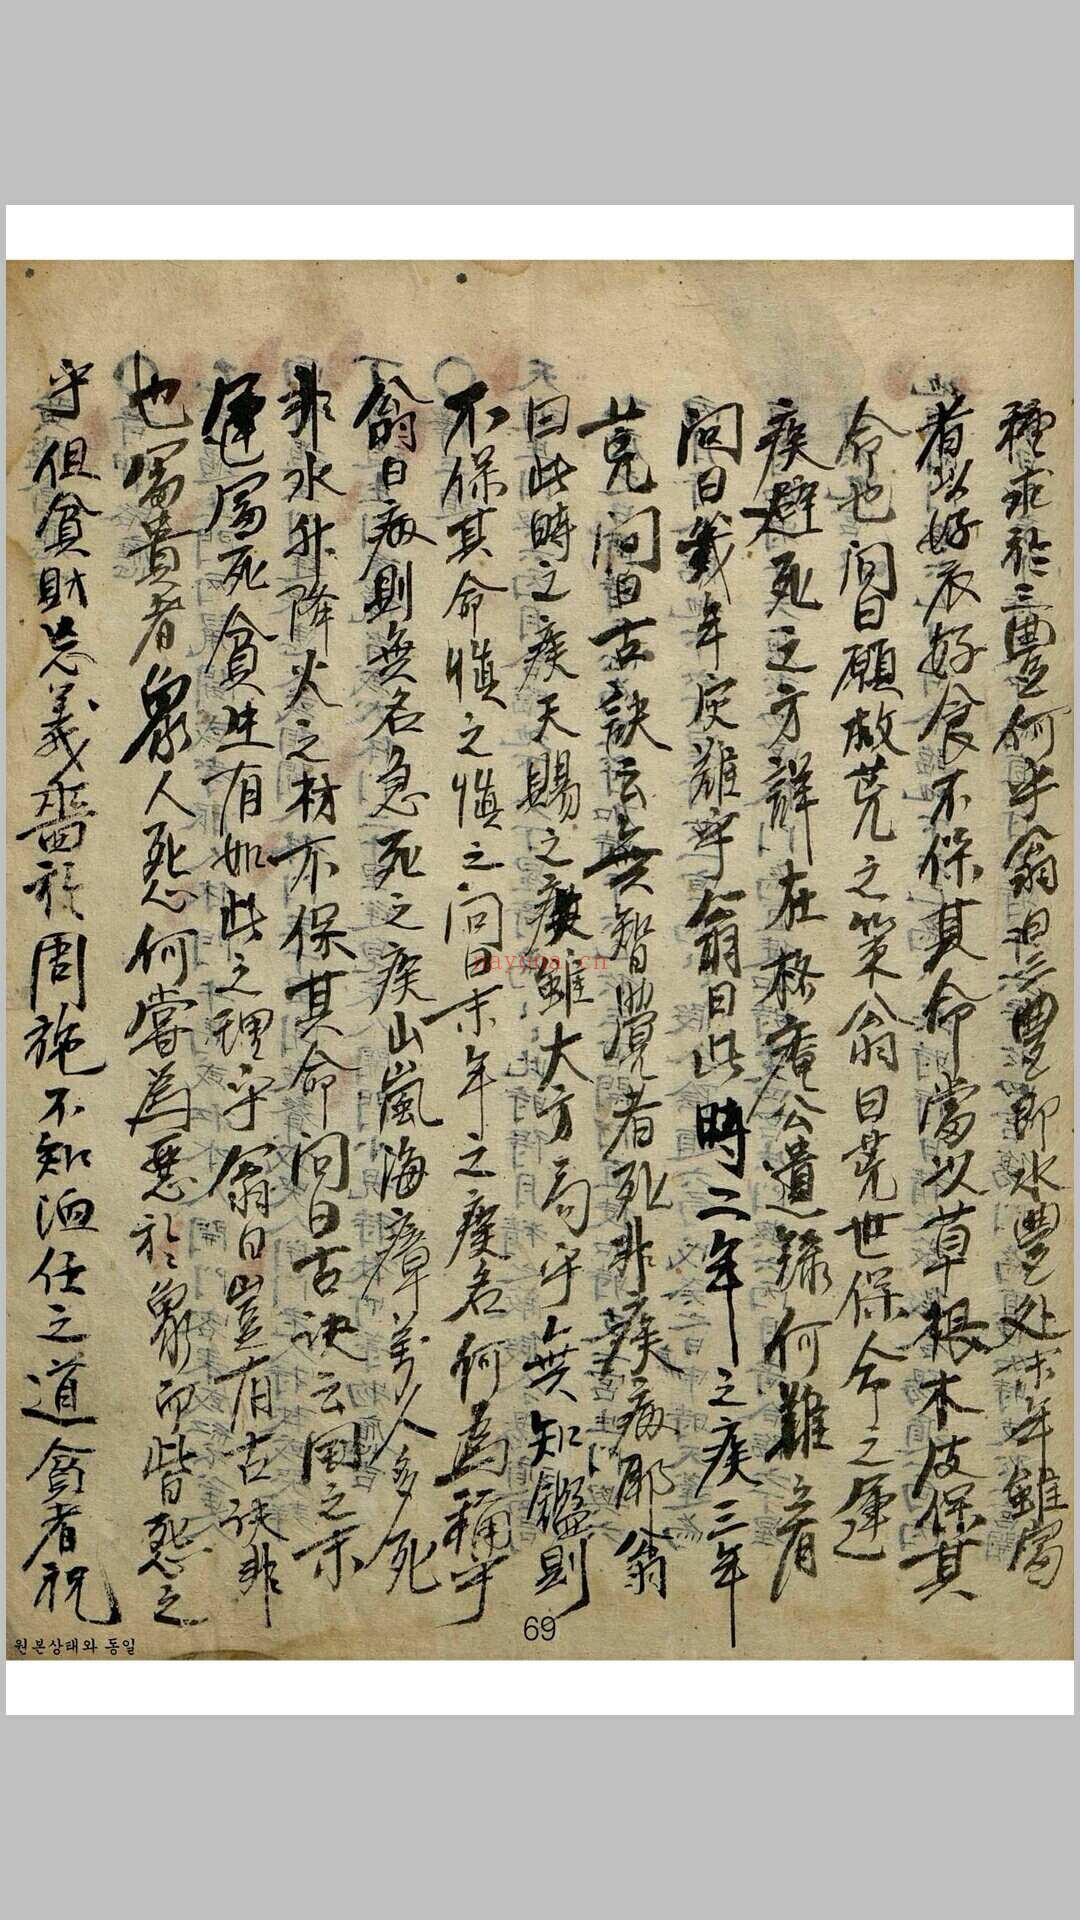 種求於三豐何乎翁曰三豊即水豊処末年雖富
者以好衣好食不保其命當以草根木皮保其
命也問曰願救荒之策翁曰荒世保命之運
疾避死之方詳在格庵公遺錄何難之有
問曰幾年灾難乎翁曰此時二年之疾三年
荒問曰古訣云無智覺者死非疾病耶翁
曰此時之疾天賜之疾雖大方局乎無知鑑則
不保其命慎之慎之問曰末年之疾名何為稱乎
翁曰病則無名急死之疾山嵐海瘴萬人多死
非水升降火之材不保其命問曰古訣云末之
運富死貧生有如此之理乎翁曰豈有古訣非
也富貴者衆人死心何嘗為惡於衆而皆怨之
乎但貪財忘義嗇於周施不知洫任之道貧者視
69
원본상태와 동일
nayona.cn